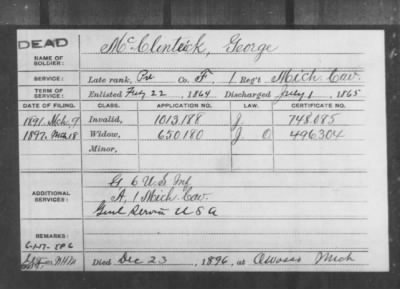 DEAD
NAME OF SOLDIER: McClintick, George
SERVICE: Late rank, Pvt Co. F, 1 Reg't Mich Cav.
TERM OF SERVICE: Enlisted Feby 22, 1864 Discharged July 1, 1865
DATE OF FILING. CLASS. APPLICATION NO. LAW. CERTIFICATE NO.
1891. Mch. 9 Invalid, 1013.188 J 748.085
1897. Mch 18 Widow, 650180 J O 496304
Minor,
ADDITIONAL SERVICES:
G 6 U S Inf
A, 1 Mich Cav.
Genl Service U S A
REMARKS:
Died Dec 23, 1896, at Owosso Mich